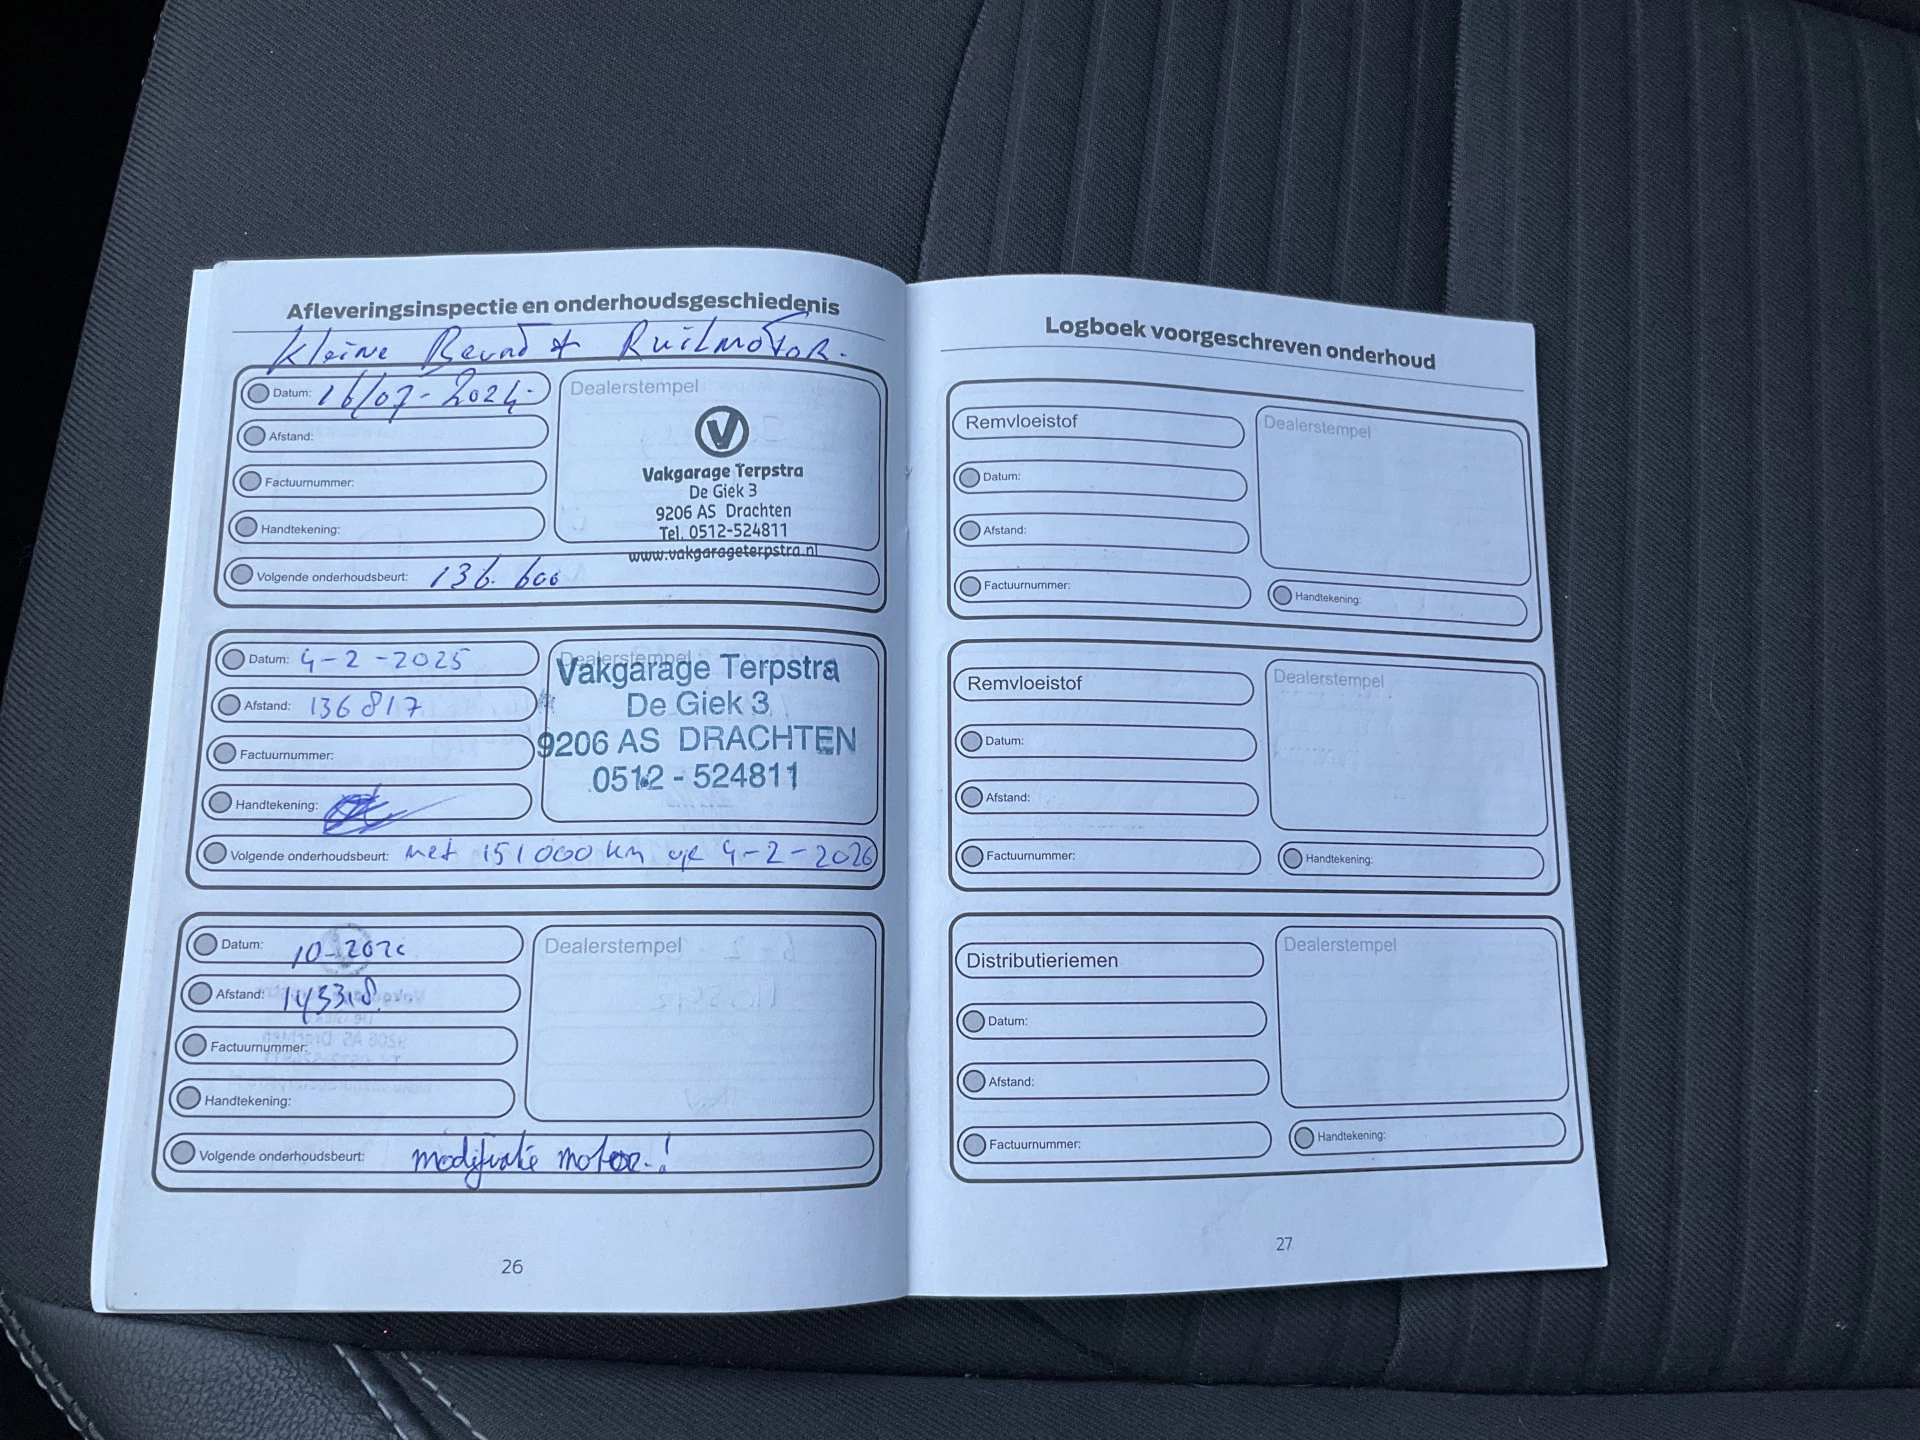 Afleveringsinspectie en onderhoudsgeschiedenis
Kleine Beurt + Ruilmotor.
Datum: 16/07-2024-
Dealerstempel
Afstand:
Factuurnummer:
Handtekening:
Vakgarage Terpstra
De Giek 3
9206 AS Drachten
Tel. 0512-524811
www.vakgarageterpstra.nl
Volgende onderhoudsbeurt: 136.600
Datum: 4-2-2025
Afstand: 136817
Factuurnummer:
Handtekening:
Dealerstempel
Vakgarage Terpstra
De Giek 3
9206 AS DRACHTEN
0512 - 524811
Volgende onderhoudsbeurt: met 151000 km of 4-2-2026
Datum:
Afstand:
Factuurnummer:
Handtekening:
Dealerstempel
Volgende onderhoudsbeurt: modificatie motor.!
26
Logboek voorgeschreven onderhoud
Remvloeistof
Datum:
Afstand:
Factuurnummer:
Dealerstempel
Handtekening:
Remvloeistof
Datum:
Afstand:
Factuurnummer:
Dealerstempel
Handtekening:
Distributieriemen
Datum:
Afstand:
Factuurnummer:
Dealerstempel
Handtekening:
27